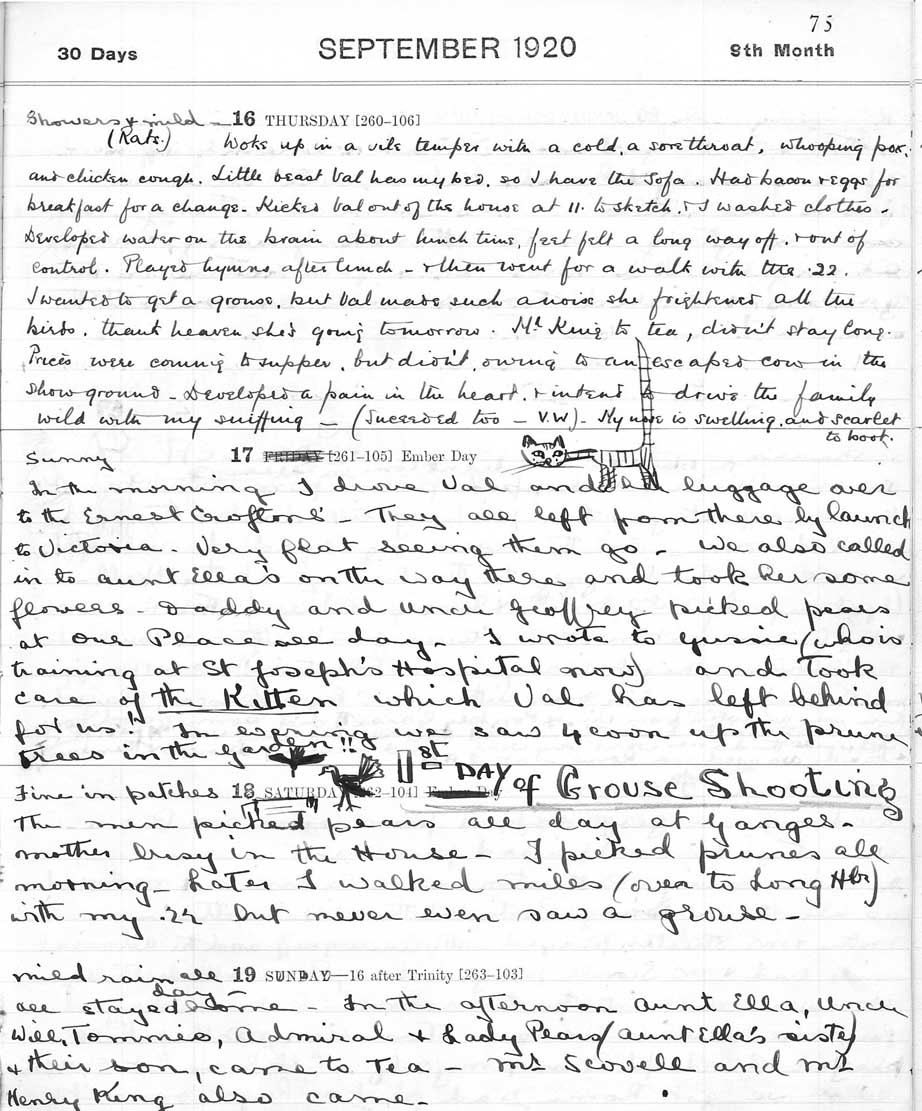 75
30 Days SEPTEMBER 1920 9th Month
Showers & mild - 16 THURSDAY [260-106]
(Rats.) Woke up in a vile temper with a cold, a sore throat, whooping pox,
and chicken cough. Little beast Val has my bed, so I have the sofa. Had bacon & eggs for
breakfast for a change - Kicked Val out of the house at 11. to sketch, & I washed clothes -
Developed water on the brain about lunch time, feet felt a long way off, & out of
control. Played hymns after lunch - & then went for a walk with the .22.
I wanted to get a grouse, but Val made such a noise she frightened all the
birds. thank heaven she's going tomorrow. Mr King to tea, didn't stay long.
Prices were coming to supper, but didn't, owing to an escaped cow in the
show ground - Developed a pain in the heart, & intend to drive the family
wild with my sniffing - (Succeeded too - V.W) - My nose is swelling, and scarlet
to boot.
Sunny 17 FRIDAY [261-105] Ember Day
In the morning I drove Val and her luggage over
to the Ernest Croftons' - They all left from there by launch
to Victoria - Very flat seeing them go - We also called
in to aunt Ella's on the way there and took her some
flowers - Daddy and Uncle Geoffrey picked pears
at our Place all day - I wrote to Gussie (who is
training at St Joseph's Hospital now) and took
care of the Kitten which Val has left behind
for us!! In evening we saw 4 coon up the prune
trees in the garden!!
1st DAY of Grouse Shooting
Fine in patches 18 SATURDAY [262-104] Ember Day
The men picked pears all day at Ganges -
mother busy in the House - I picked prunes all
morning - Later I walked miles (over to Long Hbr)
with my .22 but never even saw a grouse -
mild rain all 19 SUNDAY—16 after Trinity [263-103]
day -
all stayed home - In the afternoon aunt Ella, Uncle
Will, Tommie, Admiral & Lady Pears (aunt Ella's sister)
& their son, came to Tea - Mr Scovell and Mr
Henry King also came -